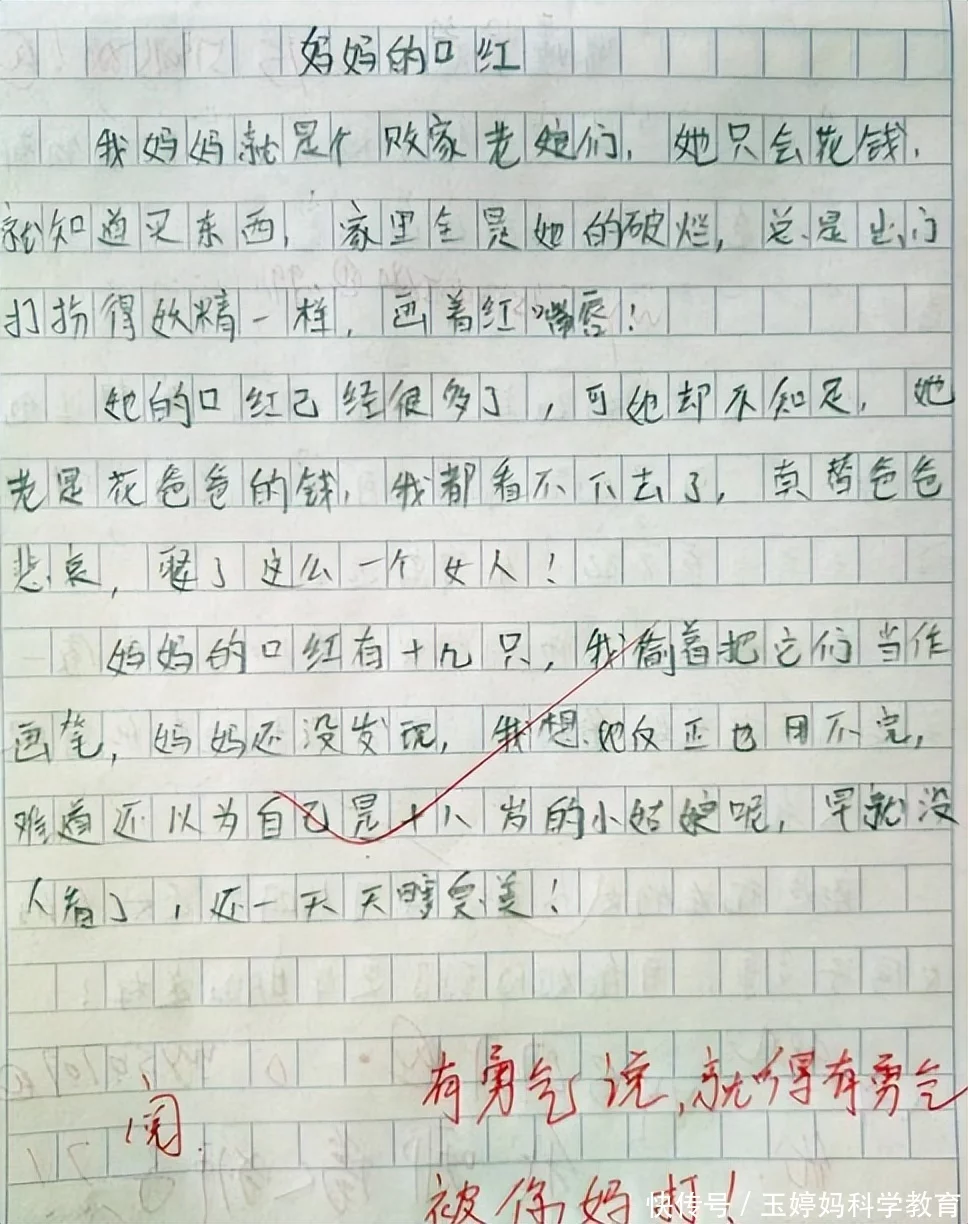 妈妈的口红
我妈妈就是个败家老娘们，她只会花钱，
就知道买东西，家里全是她的破烂，总是出门
打扮得妖精一样，画着红嘴唇！
她的口红已经很多了，可她却不知足，她
老是花爸爸的钱，我都看不下去了，真替爸爸
悲哀，娶了这么一个女人！
妈妈的口红有十九只，我偷着把它们当作
画笔，妈妈还没发现，我想她反正也用不完，
难道还以为自己是十八岁的小姑娘呢，早就没
人看了，还一天天瞎臭美！
阅
有勇气说，就得有勇气
被你妈打！
快传号／玉婷妈科学教育